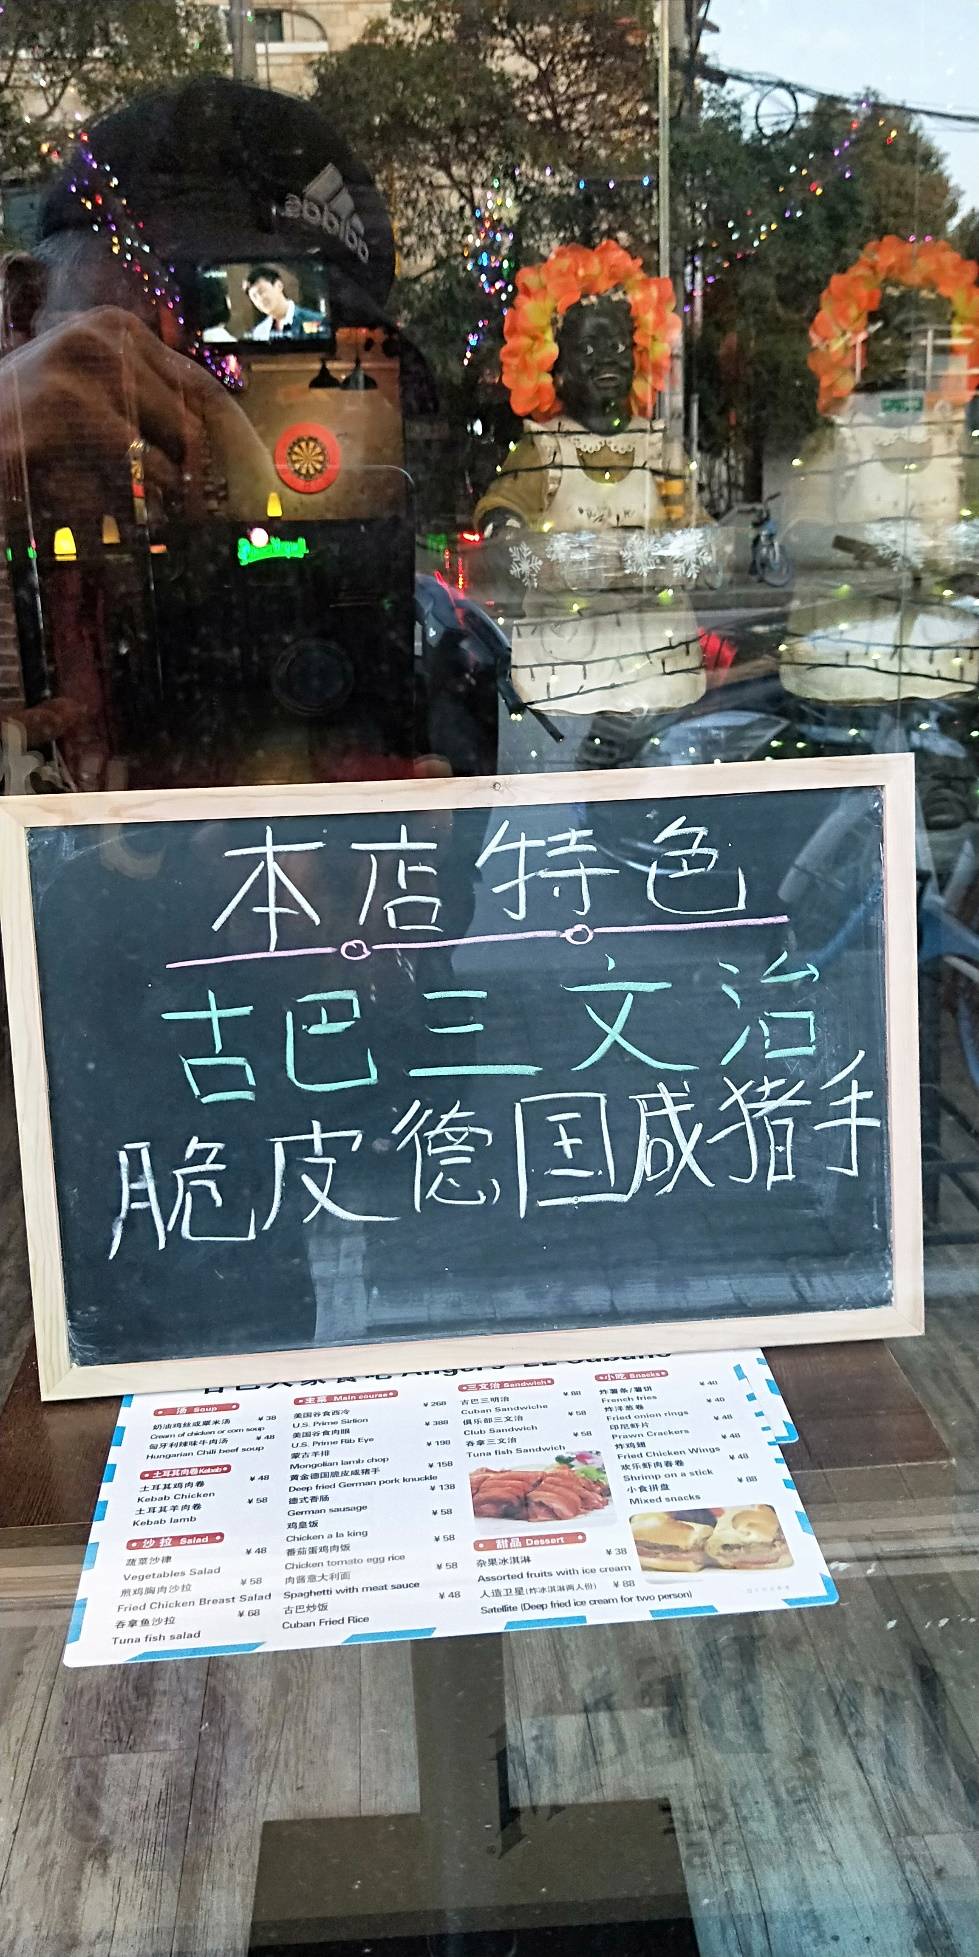 adidas
本店特色
古巴三文治
脆皮德国咸猪手
汤 Soup
奶油鸡丝或粟米汤 ¥38
Cream of chicken or corn soup
匈牙利辣味牛肉汤 ¥48
Hungarian Chili beef soup
土耳其肉卷 Kebab
土耳其鸡肉卷 ¥48
Kebab Chicken
土耳其羊肉卷 ¥58
Kebab lamb
沙拉 Salad
蔬菜沙律 ¥48
Vegetables Salad
煎鸡胸肉沙拉 ¥58
Fried Chicken Breast Salad
吞拿鱼沙拉 ¥68
Tuna fish salad
主菜 Main course
美国谷食西冷 ¥268
U.S. Prime Sirlion
美国谷食肉眼 ¥388
U.S. Prime Rib Eye
蒙古羊排 ¥198
Mongolian lamb chop
黄金德国脆皮咸猪手 ¥158
Deep fried German pork knuckle
德式香肠 ¥138
German sausage
鸡皇饭 ¥58
Chicken a la king
番茄蛋鸡肉饭 ¥58
Chicken tomato egg rice
肉酱意大利面 ¥58
Spaghetti with meat sauce
古巴炒饭 ¥48
Cuban Fried Rice
三文治 Sandwich
古巴三明治 ¥88
Cuban Sandwiche
俱乐部三文治 ¥58
Club Sandwich
吞拿三文治 ¥58
Tuna fish Sandwich
甜品 Dessert
杂果冰淇淋 ¥38
Assorted fruits with ice cream
人造卫星(炸冰淇淋两人份) ¥88
Satellite (Deep fried ice cream for two person)
小吃 Snacks
炸薯条/薯饼 ¥40
French fries
炸洋葱卷 ¥40
Fried onion rings
印尼虾片 ¥48
Prawn Crackers
炸鸡翅 ¥48
Fried Chicken Wings
欢乐鲜肉春卷 ¥48
Shrimp on a stick
小食拼盘 ¥88
Mixed snacks